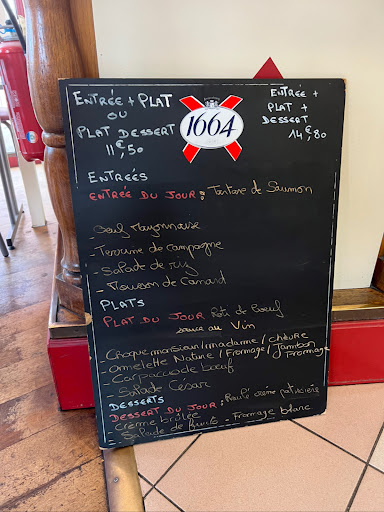 ENTRÉE + PLAT
OU
PLAT DESSERT
11€,50
1664
ENTRÉE +
PLAT +
DESSERT
14€,80
ENTREÉS
ENTRÉE DU JOUR : Tartare de Saumon
- Oeuf Mayonnaise
- Terrine de Campagne
- Salade de Riz
- Mousson de Canard
PLATS
PLAT DU JOUR Roti de boeuf
sauce au Vin
- Croque monsieur/madame/chèvre
- Omelette Nature/Fromage/Jambon
Fromage
- Carpaccio de boeuf
- Salade César
DESSERTS
DESSERT DU JOUR : Roulé crème patissière
- Crème brûlée
- Fromage blanc
- Salade de fruits